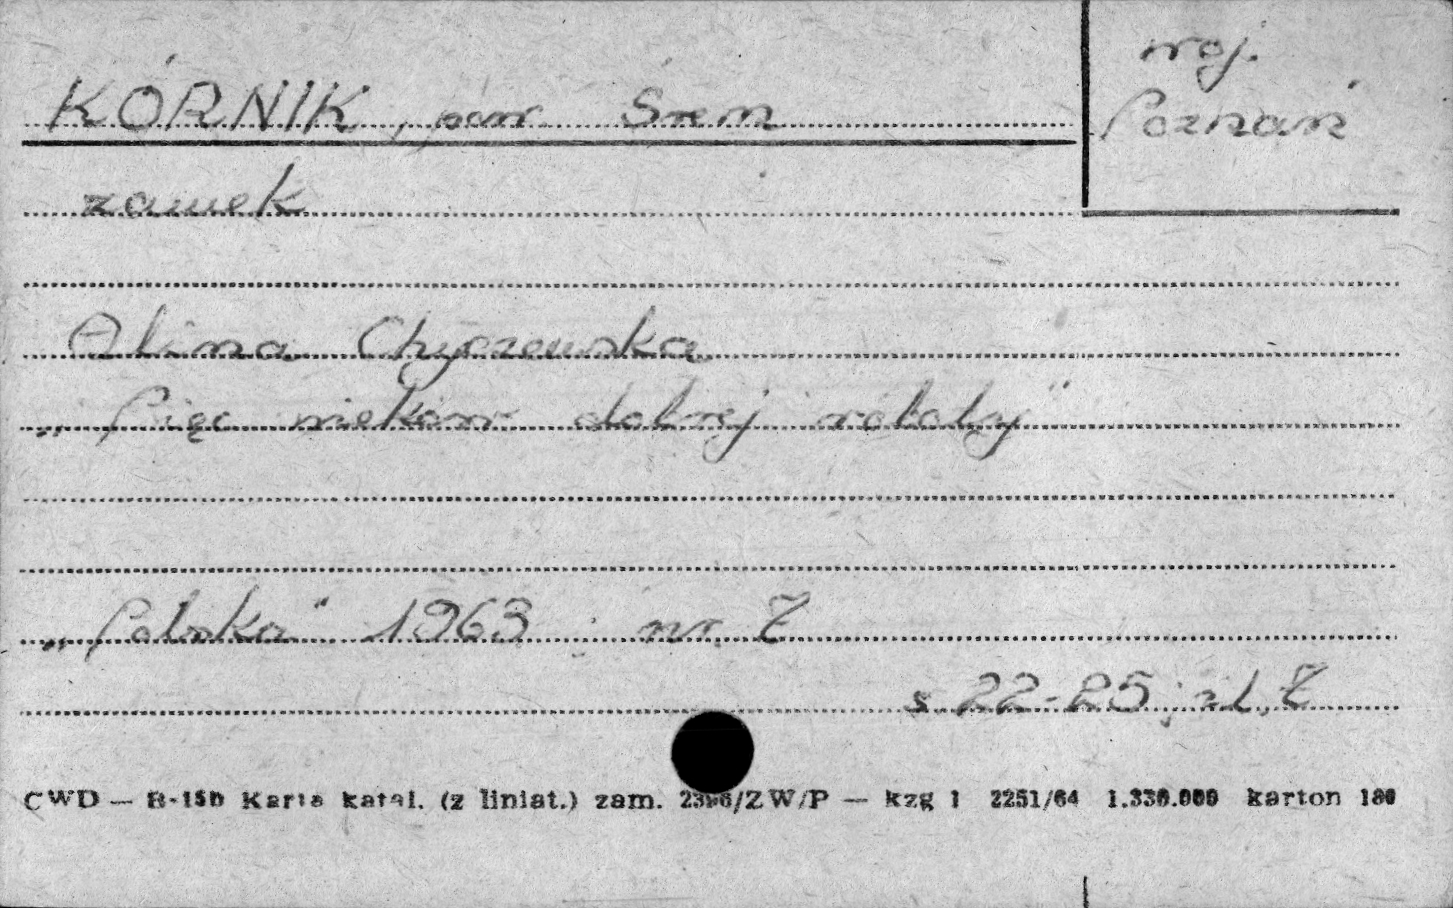 KÓRNIK, pow. Śrem
woj. Poznań
zamek
Alina Chyczewska
„Pięć wieków dobrej roboty"
„Polska" 1963 nr. 7
s. 22-25; il. 7
CWD — B-15b Karta katal. (z liniat.) zam. 2396/ZW/P — kzg 1 2251/64 1.330.000 karton 180